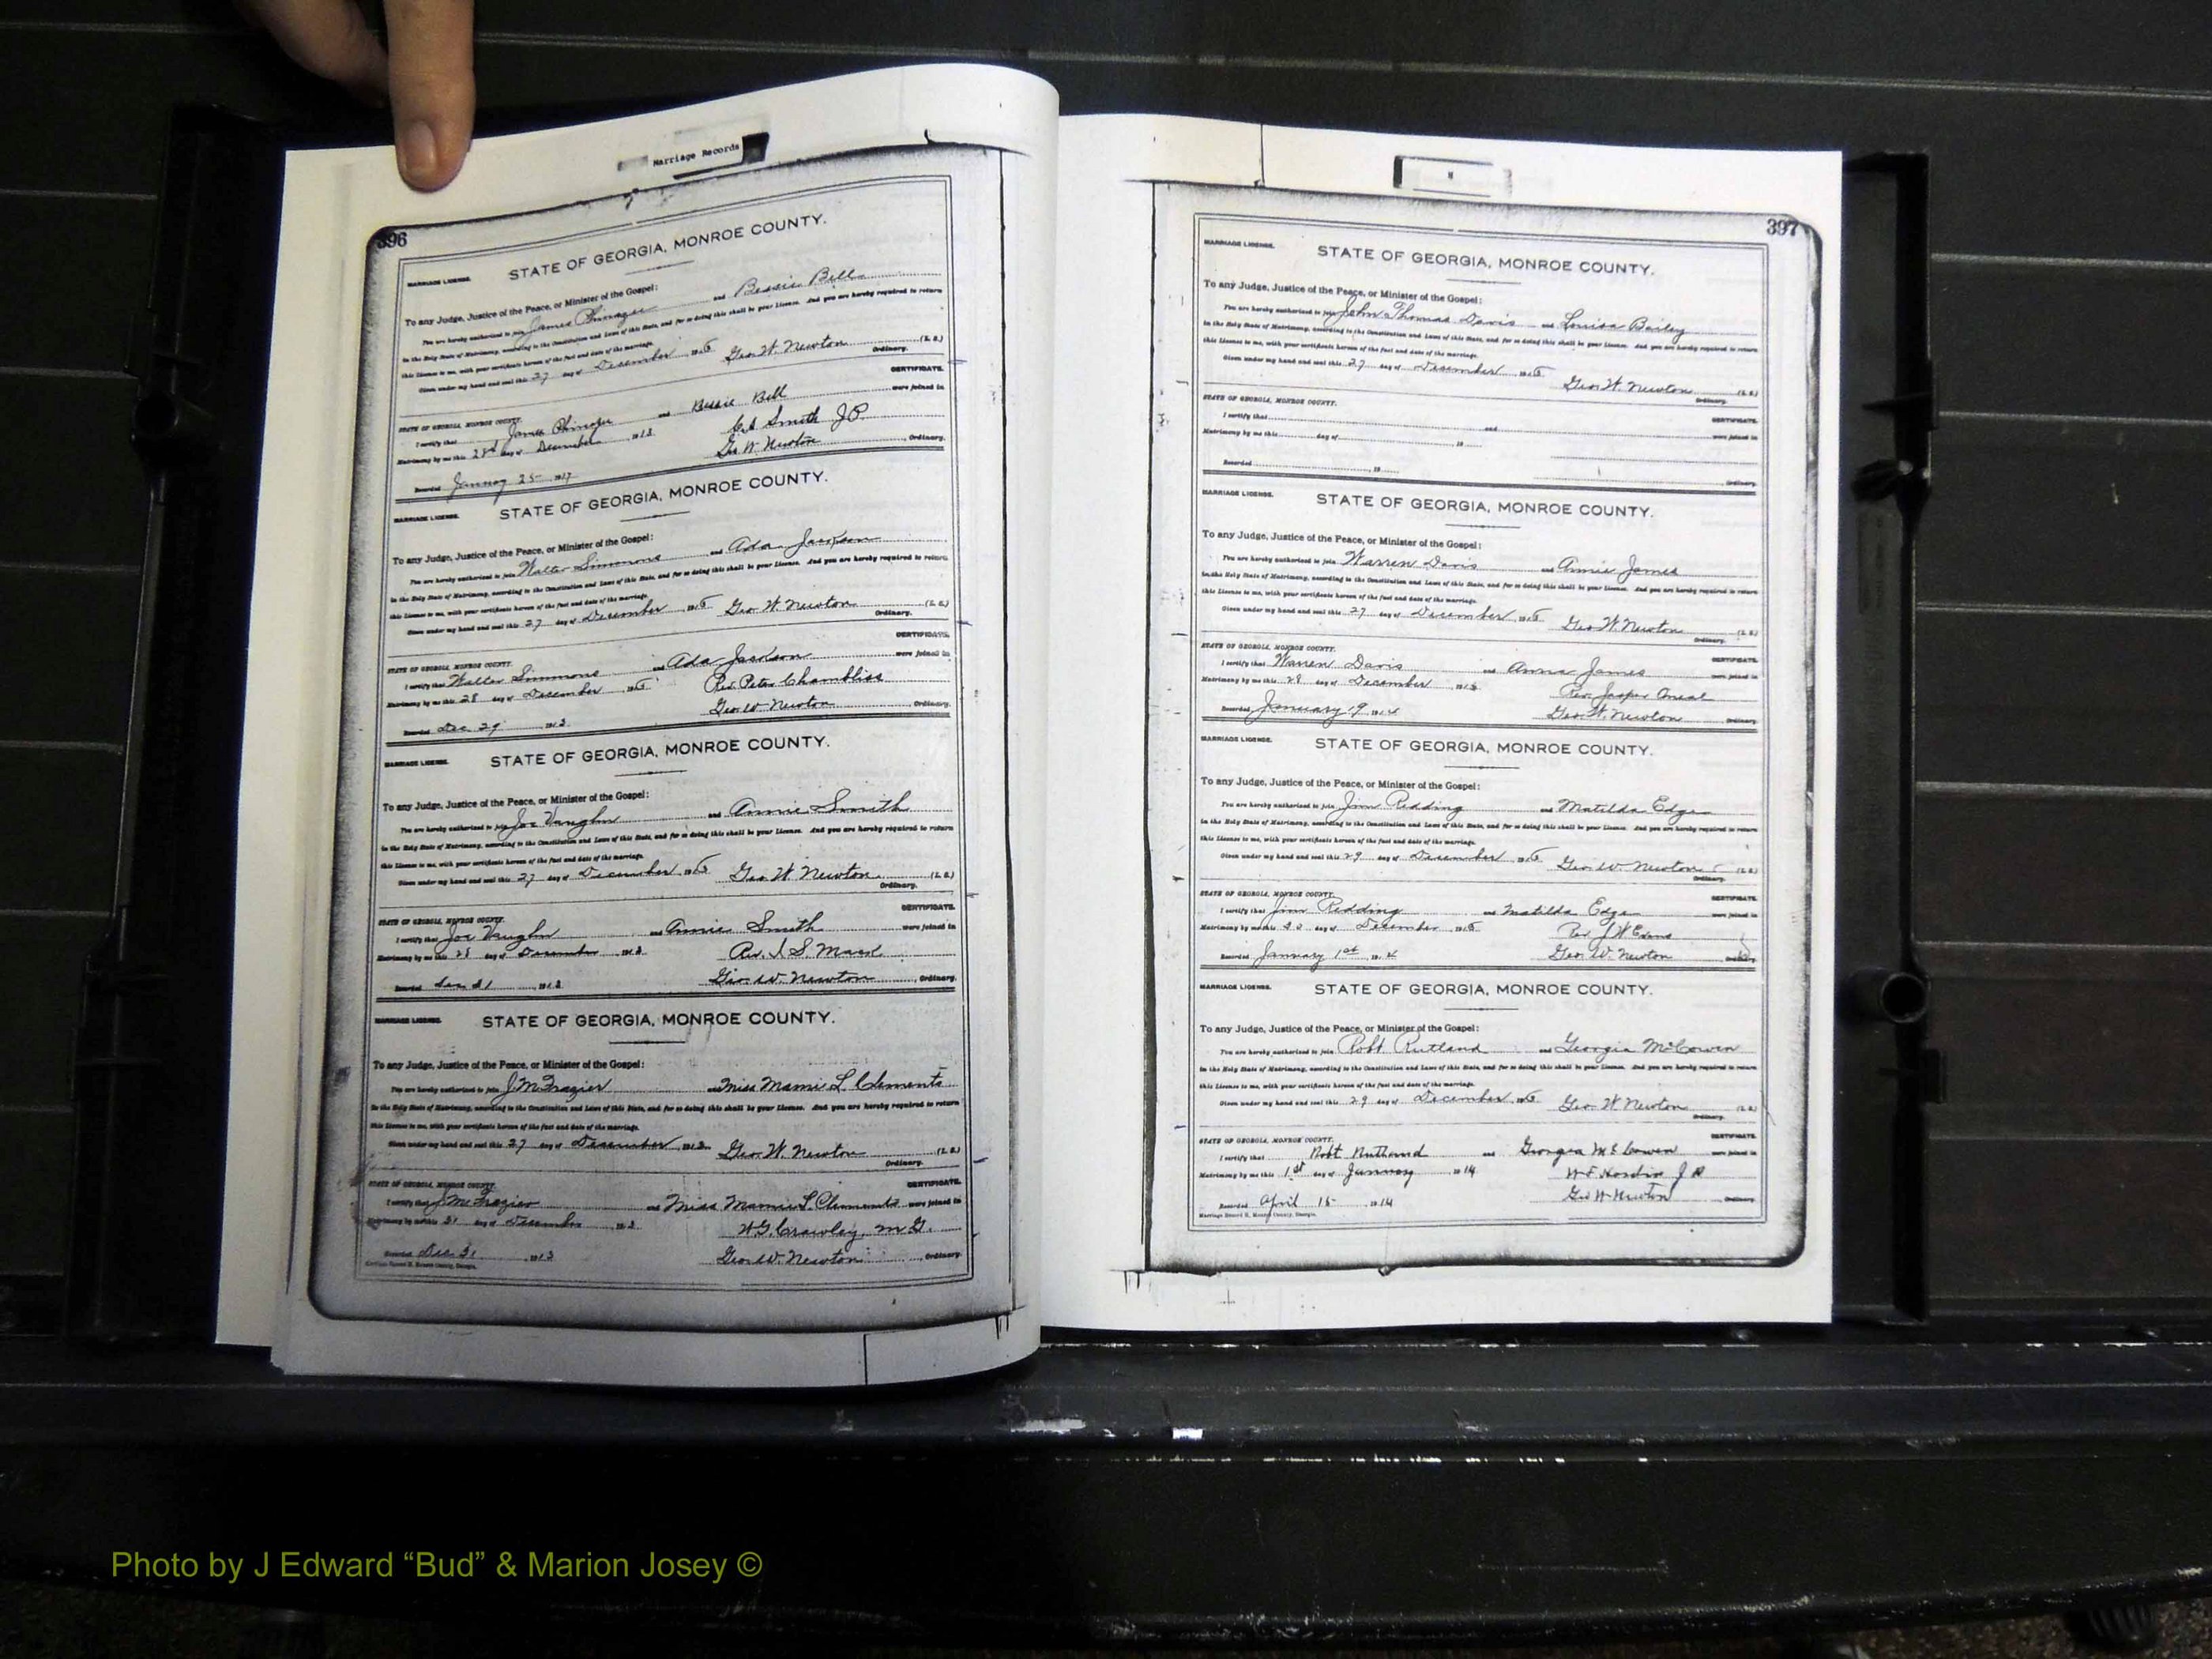 Marriage Records
396
MARRIAGE LICENSE.
STATE OF GEORGIA, MONROE COUNTY.
To any Judge, Justice of the Peace, or Minister of the Gospel:
You are hereby authorized to join James and Bessie Bell
in the Holy State of Matrimony, according to the Constitution and Laws of this State, and for so doing this shall be your License. And you are hereby required to return
this License to me, with your certificate hereon of the fact and date of the marriage.
Given under my hand and seal this 27 day of December Geo. W. Newton (L. S.)
Ordinary.
CERTIFICATE.
STATE OF GEORGIA, MONROE COUNTY.
I certify that James and Bessie Bell were joined in
Matrimony by me this 28th day of December 1913 Smith J P
Recorded January 25 1917 Geo W Newton Ordinary.
MARRIAGE LICENSE.
STATE OF GEORGIA, MONROE COUNTY.
To any Judge, Justice of the Peace, or Minister of the Gospel:
You are hereby authorized to join Walter Simmons and Ada Jackson
in the Holy State of Matrimony, according to the Constitution and Laws of this State, and for so doing this shall be your License. And you are hereby required to return
this License to me, with your certificate hereon of the fact and date of the marriage.
Given under my hand and seal this 27 day of December Geo W. Newton (L. S.)
Ordinary.
CERTIFICATE.
STATE OF GEORGIA, MONROE COUNTY.
I certify that Walter Simmons and Ada Jackson were joined in
Matrimony by me this 28 day of December Rev. Peter Chambliss
Recorded Dec 29 1913 Geo. W Newton Ordinary.
MARRIAGE LICENSE.
STATE OF GEORGIA, MONROE COUNTY.
To any Judge, Justice of the Peace, or Minister of the Gospel:
You are hereby authorized to join Joe Vaughn and Annie Smith
in the Holy State of Matrimony, according to the Constitution and Laws of this State, and for so doing this shall be your License. And you are hereby required to return
this License to me, with your certificate hereon of the fact and date of the marriage.
Given under my hand and seal this 27 day of December Geo W. Newton (L. S.)
Ordinary.
CERTIFICATE.
STATE OF GEORGIA, MONROE COUNTY.
I certify that Joe Vaughn and Annie Smith were joined in
Matrimony by me this 28 day of December 1913 Rev. S.
Recorded Dec 31 1913 Geo. W. Newton Ordinary.
MARRIAGE LICENSE.
STATE OF GEORGIA, MONROE COUNTY.
To any Judge, Justice of the Peace, or Minister of the Gospel:
You are hereby authorized to join J M Frazier and Miss Mamie L Clements
in the Holy State of Matrimony, according to the Constitution and Laws of this State, and for so doing this shall be your License. And you are hereby required to return
this License to me, with your certificate hereon of the fact and date of the marriage.
Given under my hand and seal this 27 day of December 1913 Geo. W. Newton (L. S.)
Ordinary.
CERTIFICATE.
STATE OF GEORGIA, MONROE COUNTY.
I certify that J M Frazier and Miss Mamie L Clements were joined in
Matrimony by me this 31 day of December 1913 W. G. Crawley, M G.
Recorded Dec 31 1913 Geo. W. Newton Ordinary.
397
MARRIAGE LICENSE.
STATE OF GEORGIA, MONROE COUNTY.
To any Judge, Justice of the Peace, or Minister of the Gospel:
You are hereby authorized to join John Thomas Davis and Louisa Bailey
in the Holy State of Matrimony, according to the Constitution and Laws of this State, and for so doing this shall be your License. And you are hereby required to return
this License to me, with your certificate hereon of the fact and date of the marriage.
Given under my hand and seal this 27 day of December Geo. W. Newton (L. S.)
Ordinary.
STATE OF GEORGIA, MONROE COUNTY.
CERTIFICATE.
I certify that and were joined in
Matrimony by me this day of 19
Recorded , 19 , Ordinary.
MARRIAGE LICENSE.
STATE OF GEORGIA, MONROE COUNTY.
To any Judge, Justice of the Peace, or Minister of the Gospel:
You are hereby authorized to join Warren Davis and Annie James
in the Holy State of Matrimony, according to the Constitution and Laws of this State, and for so doing this shall be your License. And you are hereby required to return
this License to me, with your certificate hereon of the fact and date of the marriage.
Given under my hand and seal this 27 day of December Geo W. Newton (L. S.)
Ordinary.
STATE OF GEORGIA, MONROE COUNTY.
CERTIFICATE.
I certify that Warren Davis and Anna James were joined in
Matrimony by me this 28 day of December 1913 Rev. Jasper Oneal
Recorded January 19 1914 Geo. W. Newton Ordinary.
MARRIAGE LICENSE.
STATE OF GEORGIA, MONROE COUNTY.
To any Judge, Justice of the Peace, or Minister of the Gospel:
You are hereby authorized to join Jim Redding and Matilda Edge
in the Holy State of Matrimony, according to the Constitution and Laws of this State, and for so doing this shall be your License. And you are hereby required to return
this License to me, with your certificate hereon of the fact and date of the marriage.
Given under my hand and seal this 29 day of December Geo. W. Newton (L. S.)
Ordinary.
STATE OF GEORGIA, MONROE COUNTY.
CERTIFICATE.
I certify that Jim Redding and Matilda Edge were joined in
Matrimony by me this 30 day of December Rev J W Evans
Recorded January 1st 1914 Geo. W. Newton Ordinary.
MARRIAGE LICENSE.
STATE OF GEORGIA, MONROE COUNTY.
To any Judge, Justice of the Peace, or Minister of the Gospel:
You are hereby authorized to join Robt Rutland and Georgia McCowen
in the Holy State of Matrimony, according to the Constitution and Laws of this State, and for so doing this shall be your License. And you are hereby required to return
this License to me, with your certificate hereon of the fact and date of the marriage.
Given under my hand and seal this 29 day of December Geo. W Newton (L. S.)
Ordinary.
STATE OF GEORGIA, MONROE COUNTY.
CERTIFICATE.
I certify that Robt Rutland and Georgia McCowen were joined in
Matrimony by me this 1st day of January 1914 W. F. Hardin J P
Recorded April 15 1914 Geo W Newton Ordinary.
Marriage Record H, Monroe County, Georgia.
Photo by J Edward “Bud” & Marion Josey ©